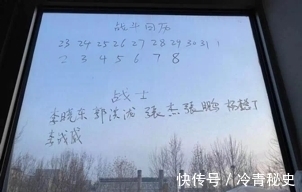 战斗日历
23 24 25 26 27 28 29 30 31 1
2 3 4 5 6 7 8
战士
李晓东 郭洪 张杰 张鹏 杨
李成盛
快传号 / 冷青秘史